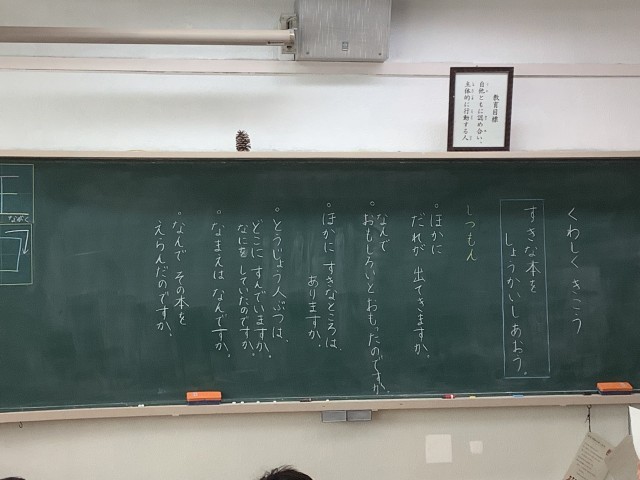 教育目標
自他ともに認め合い、
主体的に行動する人
くわしく きこう
すきな本を
しょうかいしあおう。
しつもん
○ほかに
だれが 出てきますか。
○なんで
おもしろいとおもったのですか。
○ほかに すきなところは、
ありますか。
○とうじょう人ぶつは、
どこに すんでいますか。
なにを していたのですか。
○なまえは なんですか。
○なんで その本を
えらんだのですか。